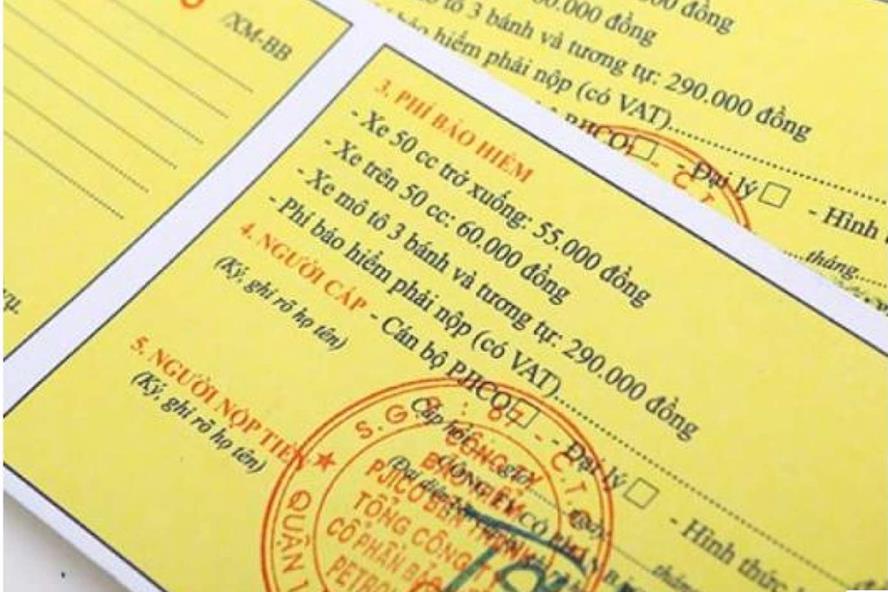 /XM-BB
3. PHÍ BẢO HIỂM
- Xe 50 cc trở xuống: 55.000 đồng
- Xe trên 50 cc: 60.000 đồng
- Xe mô tô 3 bánh và tương tự: 290.000 đồng
- Phí bảo hiểm phải nộp (có VAT)
4. NGƯỜI CẤP - Cán bộ PJICO □ - Đại lý □ - Hình thức
(Ký, ghi rõ họ tên)
Cấp hồi
5. NGƯỜI NỘP TIỀN
(Ký, ghi rõ họ tên)
CÔNG TY
BẢO HIỂM
PJICO BẾN THÀNH
TỔNG CÔNG TY
CỔ PHẦN BẢO
QUẬN 1
đồng
0.000 đồng
tô 3 bánh và tương tự: 290.000 đồng
hiểm phải nộp (có VAT)
PJICO □ - Đại lý □ - Hình
tháng